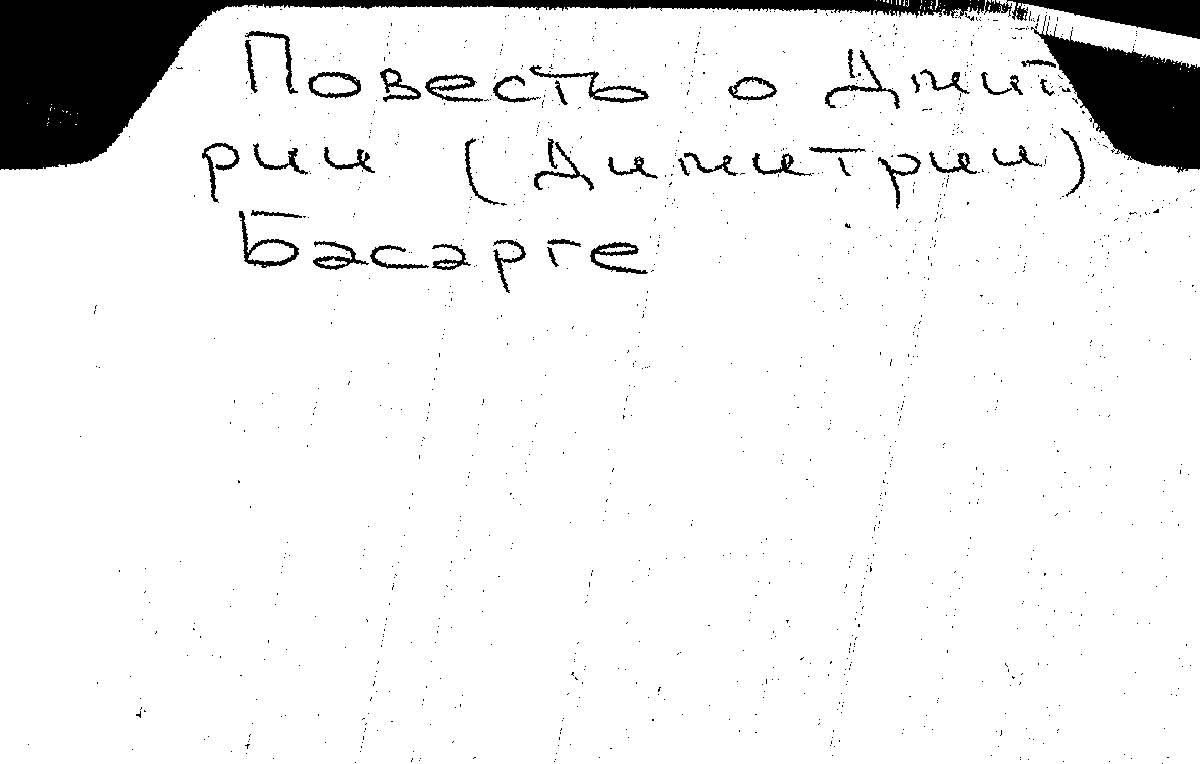 Повесть о Дмит
рии (Димитрии)
Басарге